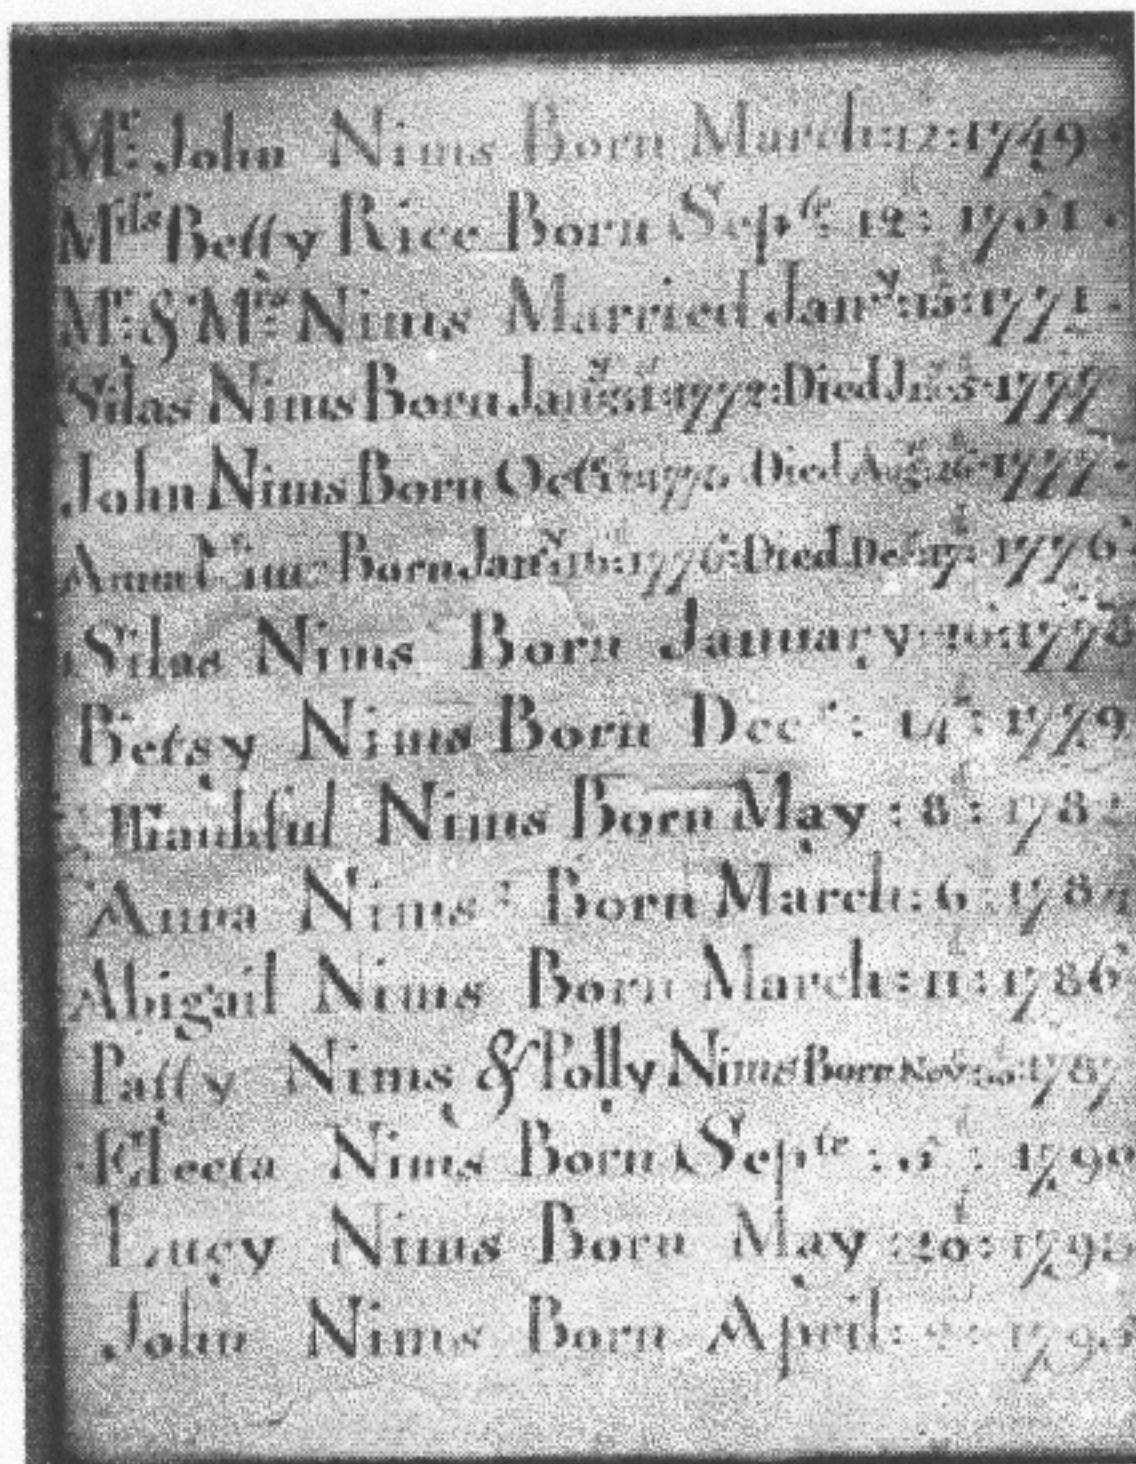 Mr: John Nims Born March:12:1749
Betty Rice Born Septr: 12: 1751
Mr: & Mrs: Nims Married Jany:15:1771
Silas Nims Born Jany:31:1772: Died 5 1777
John Nims Born Died Augt:26:1777
Anna Nims Born Jany:16:1776: Died Decr:17: 1776
Silas Nims Born January 1778
Betsy Nims Born Decr: 14: 1779
Thankful Nims Born May : 8 : 1782
Anna Nims Born March: 6 : 1784
Abigail Nims Born March: 11: 1786
Patty Nims & Polly Nims Born 1787
Electa Nims Born Septr : 1790
Lucy Nims Born May :20:
John Nims Born April: